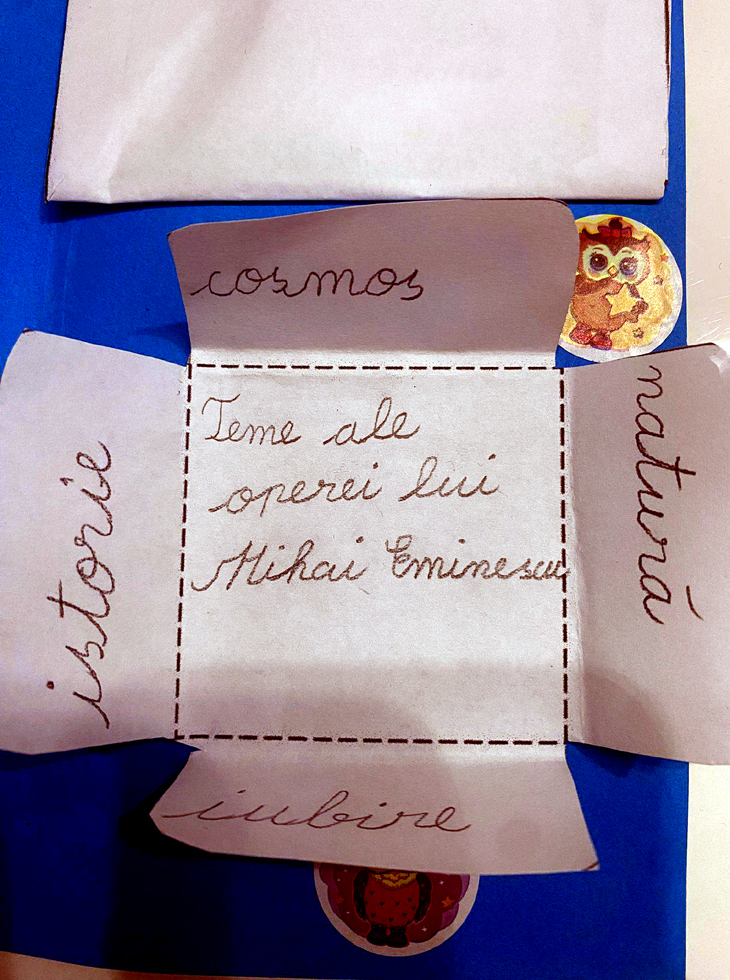 cosmos
istorie
Teme ale
operei lui
Mihai Eminescu
natură
iubire